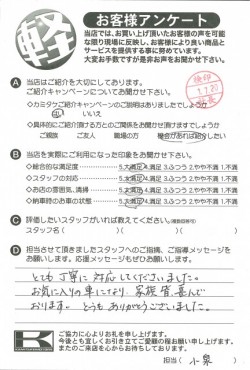 軽
お客様アンケート
当店では、お買い上げ頂いたお客様の声を可能
な限り現場に反映し、お客様により良い商品と
サービスを提供する事に努めています。
大変お手数ですが是非お声をお聞かせ下さい。
A 当店はご紹介を大切にしております。
ご紹介キャンペーンについてお聞かせ下さい?
・カミタケご紹介キャンペーンのご説明はありましたでしょうか
はい いいえ
・具体的にご紹介頂ける方とのご関係をお聞かせ頂けますでしょうか
ご親族 ご友人 職場の方 機会があれば紹介したい
B 当店を実際にご利用になった印象をお聞かせ下さい?
◇総合的な満足度 5.大満足 4.満足 3.ふつう 2.やや不満 1.不満
◇スタッフの対応 5.大満足 4.満足 3.ふつう 2.やや不満 1.不満
◇お店の雰囲気、清掃 5.大満足 4.満足 3.ふつう 2.やや不満 1.不満
◇納車時のお車の状態 5.大満足 4.満足 3.ふつう 2.やや不満 1.不満
C 評価したいスタッフがいれば教えてください。(複数回答可)
スタッフ名( )( )( )
D 担当させて頂きましたスタッフへのご指摘、ご指導メッセージを
お願いします。応援メッセージもぜひお願いします。
とても丁寧に対応してくださいました。
お気に入りの車になり、家族皆、喜んで
おります。どうもありがとうございました。
K
ご協力に心よりお礼を申し上げます。
今後とも宜しくお引き立てご愛顧の程お願い申し上げます。
またのご来店を心からお待ちしております。
担当( 小泉 )